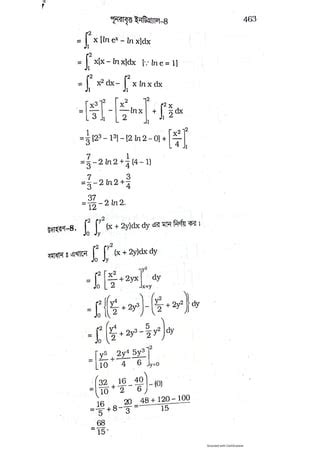 পুনরাবৃত্ত ইনটিগ্রাল-৪ 463
= ∫₁² x [ln eˣ – ln x]dx
= ∫₁² x[x – ln x]dx [∵ ln e = 1]
= ∫₁² x² dx – ∫₁² x ln x dx
= [x³/3]₁² – [x²/2 ln x]₁² + ∫₁² x/2 dx
= 1/3 [2³ – 1³] – [2 ln 2 – 0] + [x²/4]₁²
= 7/3 – 2 ln 2 + 1/4 (4 – 1)
= 7/3 – 2 ln 2 + 3/4
= 37/12 – 2 ln 2.
উদাহরণ-8. ∫₀² ∫ᵧ^y² (x + 2y)dx dy এর মান নির্ণয় কর।
সমাধান ঃ এখানে ∫₀² ∫ᵧ^y² (x + 2y)dx dy
= ∫₀² [x²/2 + 2yx]^y² ₓ₌ᵧ dy
= ∫₀² {(y⁴/2 + 2y³) – (y²/2 + 2y²)} dy
= ∫₀² (y⁴/2 + 2y³ – 5/2 y²) dy
= [y⁵/10 + 2y⁴/4 – 5y³/6]² ᵧ₌₀
= (32/10 + 16/2 – 40/6) – (0)
= 16/5 + 8 – 20/3 = (48 + 120 – 100)/15
= 68/15.